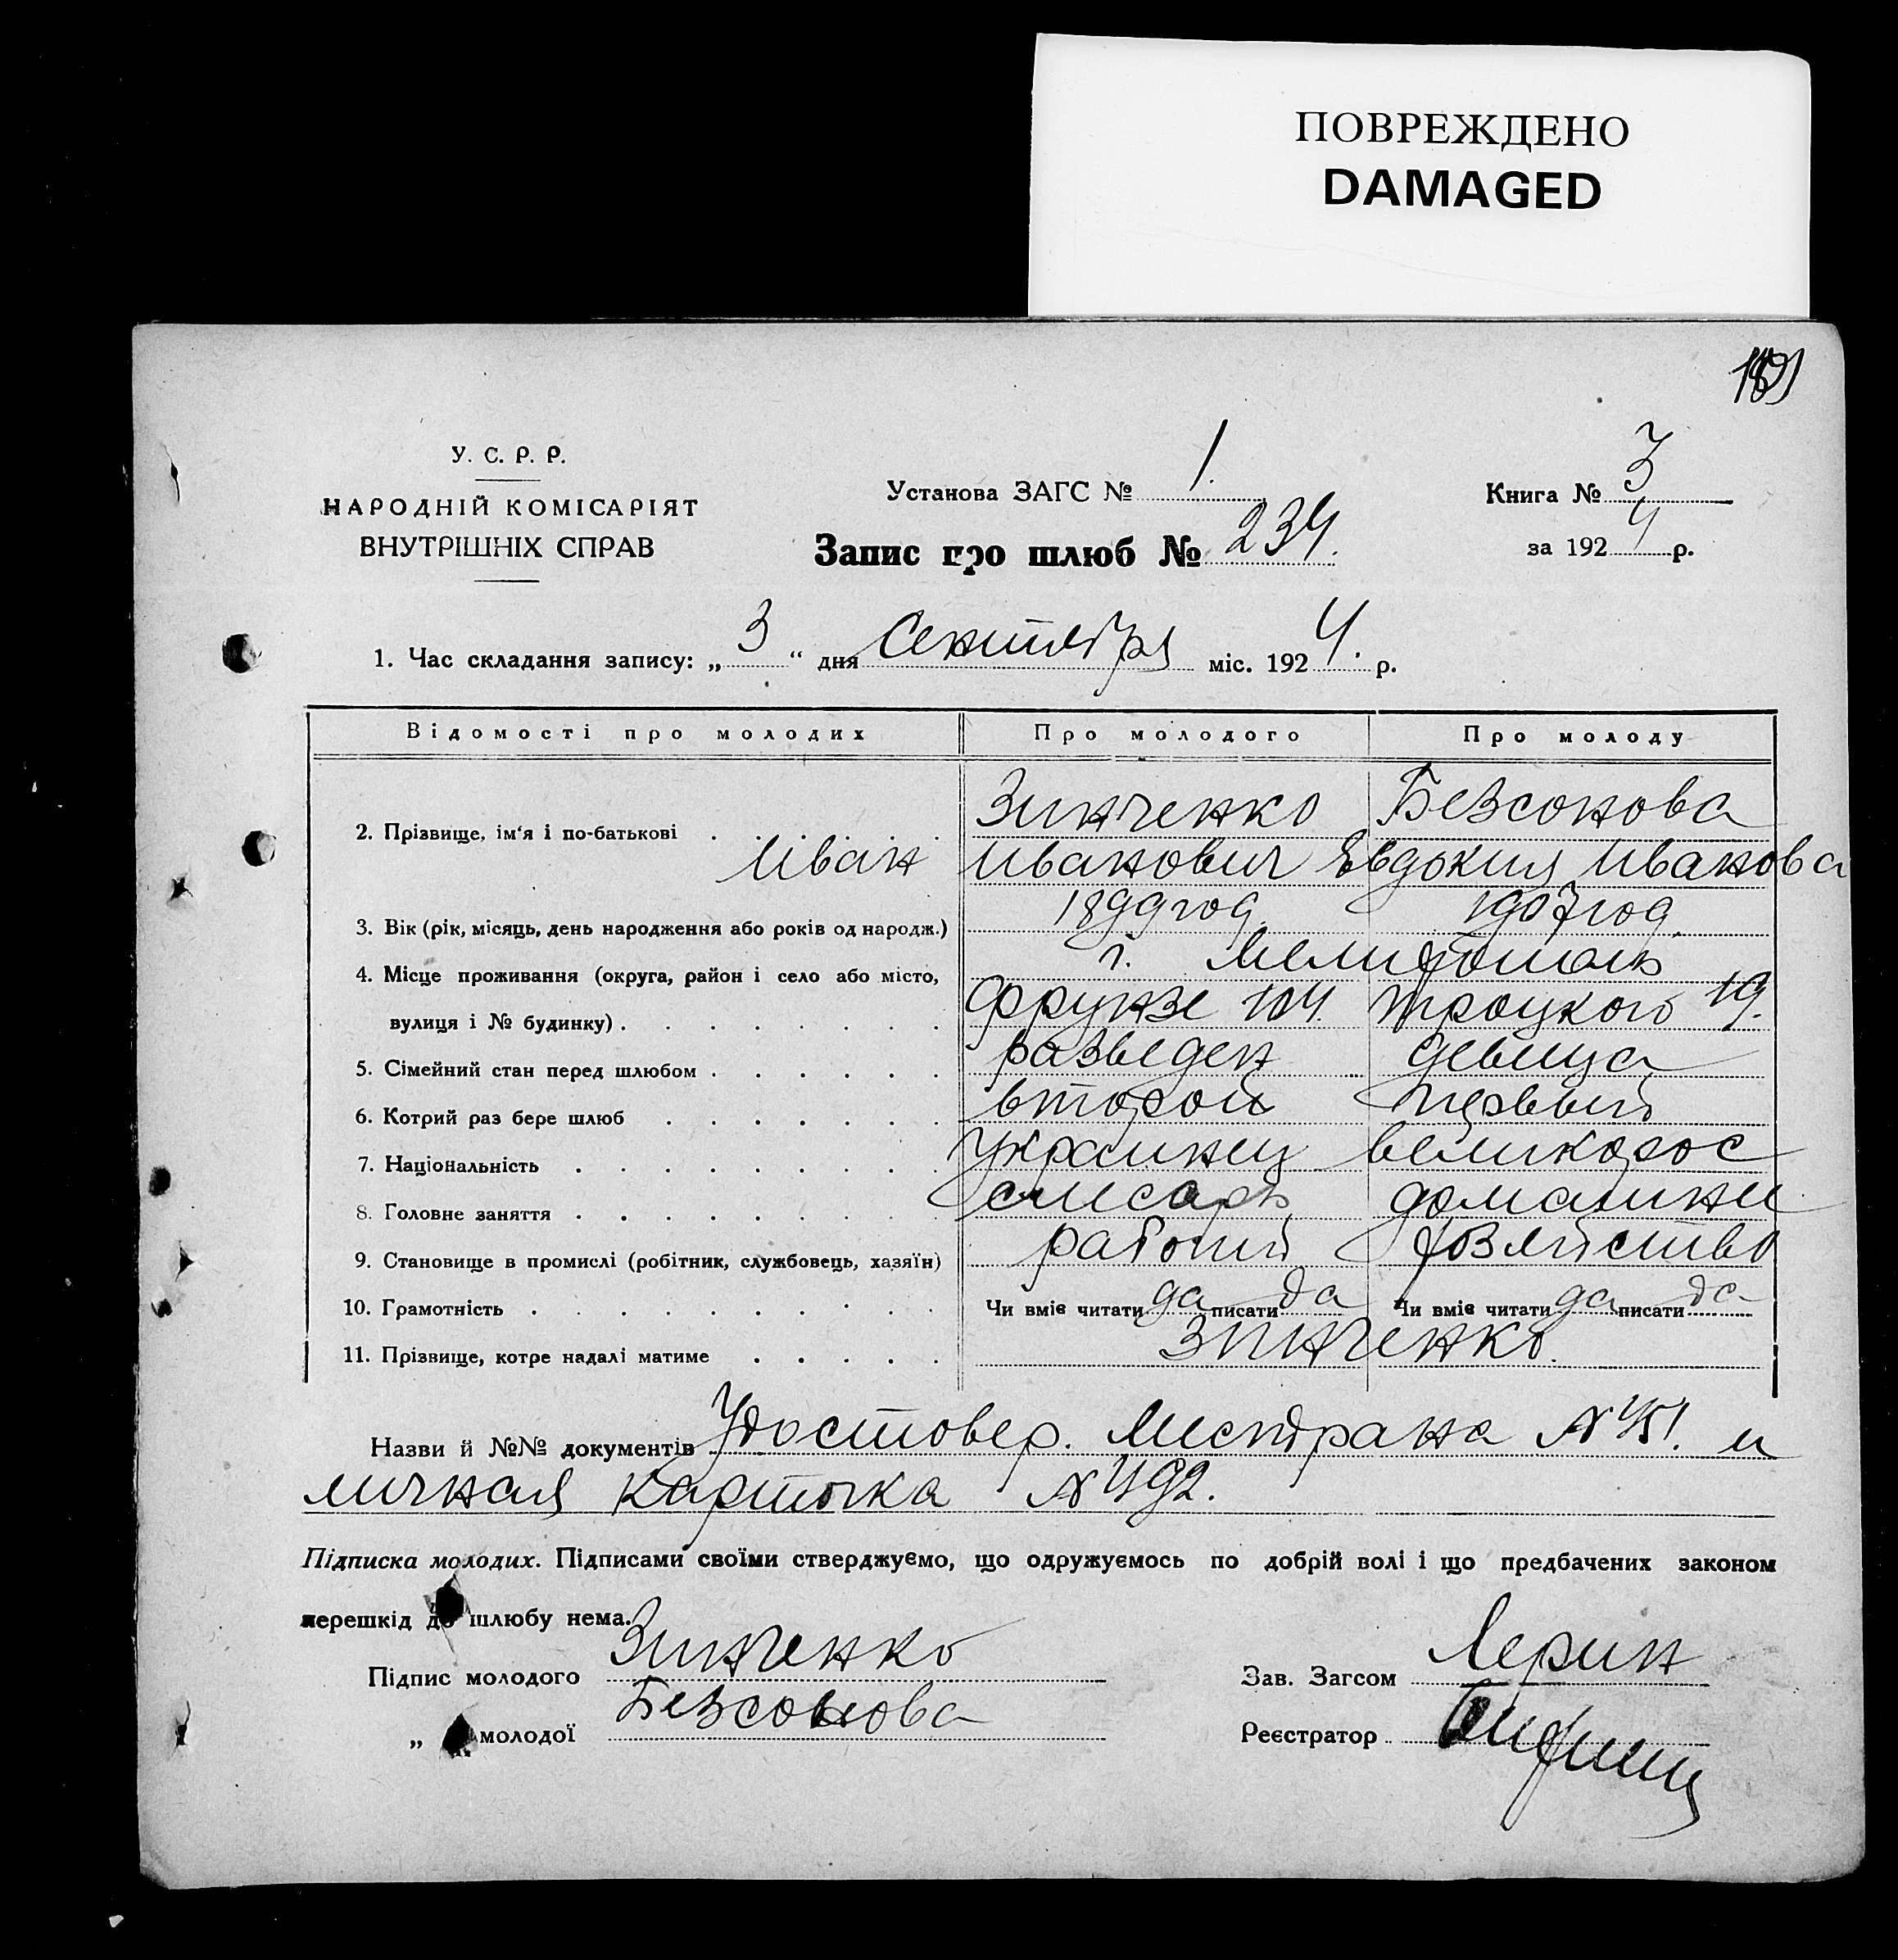 ПОВРЕЖДЕНО
DAMAGED
У. С. Р. Р.
НАРОДНІЙ КОМІСАРІЯТ
ВНУТРІШНІХ СПРАВ
Установа ЗАГС № 1.
Книга № 3
Запис про шлюб № 234.
за 1924 р.
1. Час складання запису: „3“ дня Сентября міс. 1924. р.
Відомості про молодих Про молодого Про молоду
2. Прізвище, ім'я і по-батькові Зинченко Безсонова
Иван Иванович Евдокия Иванова
3. Вік (рік, місяць, день народження або років од народж.) 1899 год. 1907 год.
4. Місце проживання (округа, район і село або місто, г. Мелитополь
вулиця і № будинку) Фрунзе 104. Троцкого 19.
5. Сімейний стан перед шлюбом разведен девица
6. Котрий раз бере шлюб второй первый
7. Національність Украинец великорос
8. Головне заняття слесарь домашнее
9. Становище в промислі (робітник, службовець, хазяїн) рабочий хозяйство
10. Грамотність Чи вміє читати да писати да Чи вміє читати да писати да
11. Прізвище, котре надалі матиме Зинченко.
Назви й №№ документів Удостовер. Месткрана №451. и
личная карточка №492.
Підписка молодих. Підписами своїми стверджуємо, що одружуємось по добрій волі і що предбачених законом
перешкід до шлюбу нема.
Підпис молодого Зинченко
Зав. Загсом Лерин
„ молодої Безсонова
Реєстратор